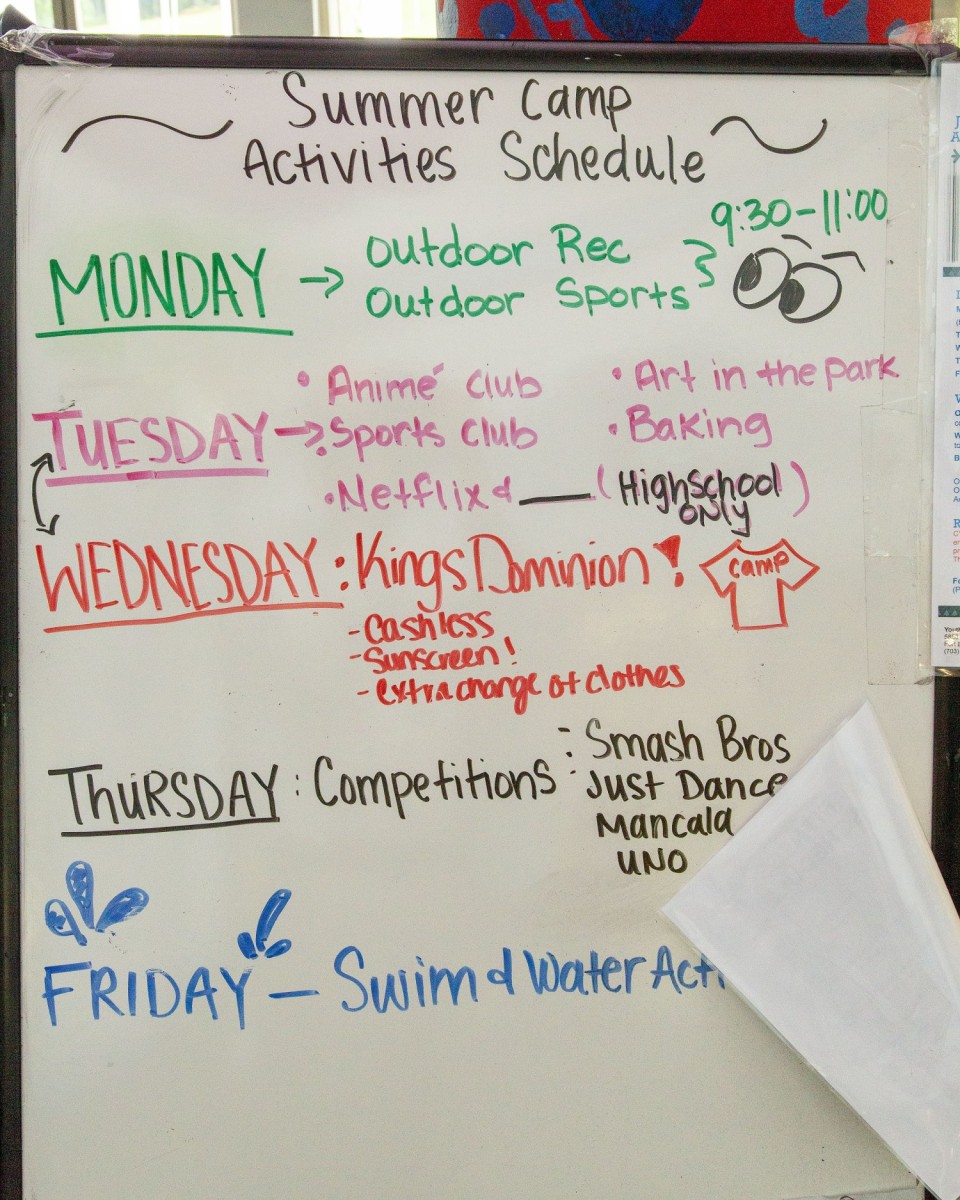 Summer Camp
Activities Schedule
9:30-11:00
MONDAY → Outdoor Rec
Outdoor Sports
• Animé Club • Art in the park
TUESDAY → • Sports Club • Baking
• Netflix & ___ (Highschool ONLY)
WEDNESDAY : Kings Dominion!
camp
- Cashless
- Sunscreen!
- extra change of clothes
THURSDAY : Competitions : Smash Bros
Just Dance
Mancala
UNO
FRIDAY — Swim & Water Acti